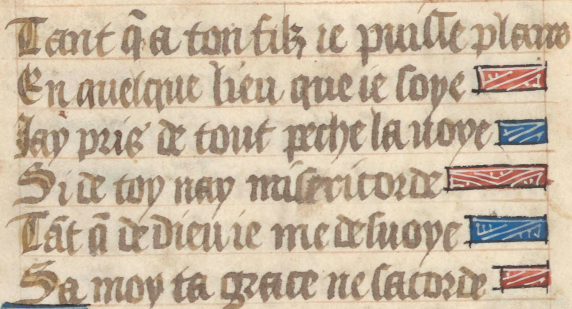 Tant q̃ a ton filz ie puisse plaire
En quelque lieu que ie soye
Jay pris de tout peche la uoye
Si de toy nay misericorde
Tãt q̃ de dieu ie me desuoye
Sa moy ta grace ne sacorde